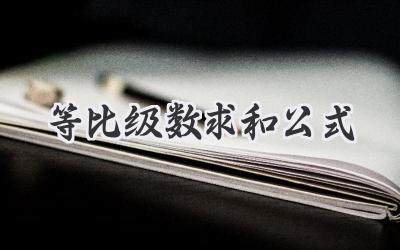 等比级数求和公式